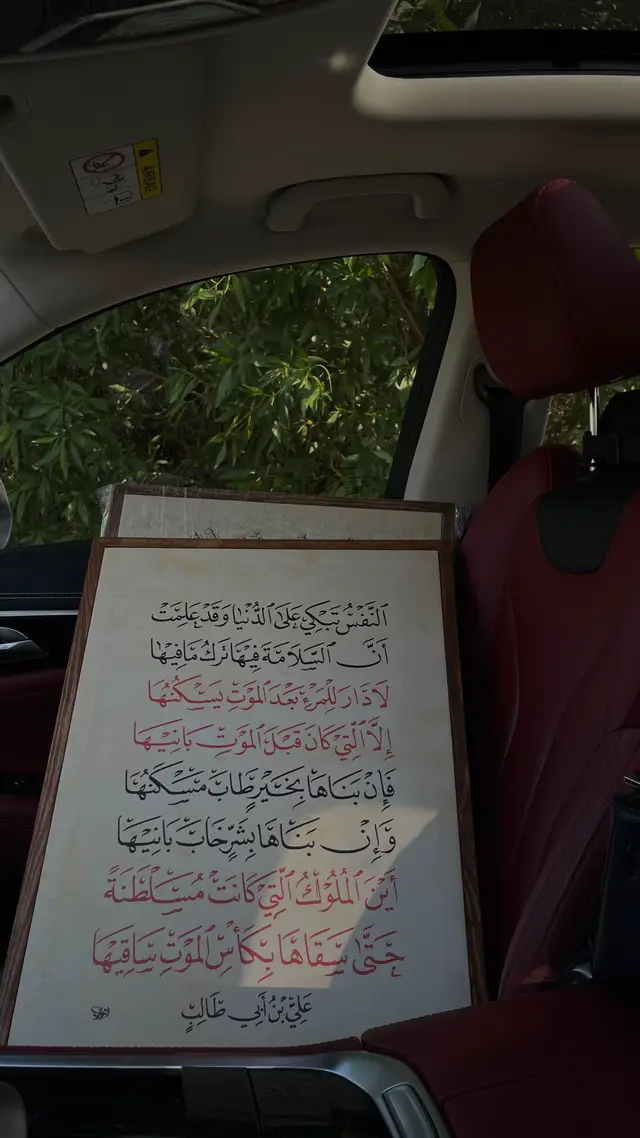 AIRBAG
النَّفْسُ تَبْكِي عَلَى الدُّنْيَا وَقَدْ عَلِمَتْ
أَنَّ السَّلَامَةَ فِيهَا تَرْكُ مَا فِيهَا
لَا دَارَ لِلْمَرْءِ بَعْدَ الْمَوْتِ يَسْكُنُهَا
إِلَّا الَّتِي كَانَ قَبْلَ الْمَوْتِ بَانِيهَا
فَإِنْ بَنَاهَا بِخَيْرٍ طَابَ مَسْكَنُهَا
وَإِنْ بَنَاهَا بِشَرٍّ خَابَ بَانِيهَا
أَيْنَ الْمُلُوكُ الَّتِي كَانَتْ مُسَلْطَنَةً
حَتَّى سَقَاهَا بِكَأْسِ الْمَوْتِ سَاقِيهَا
عَلِيُّ بْنُ أَبِي طَالِبٍ